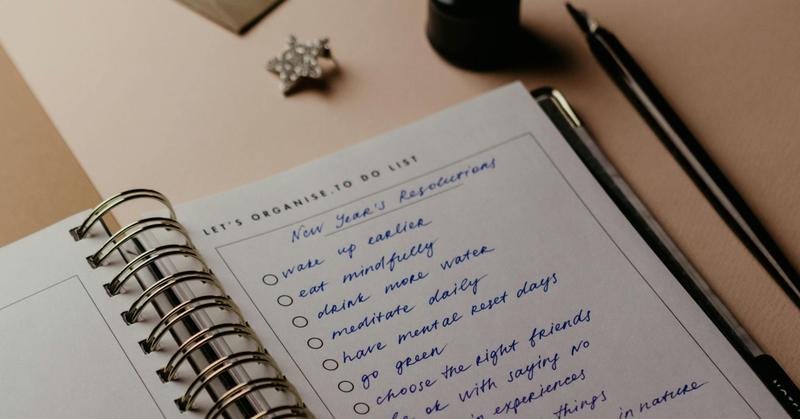 LET'S ORGANISE.TO DO LIST
New Year's Resolutions
wake up earlier
eat mindfully
drink more water
meditate daily
have mental reset days
go green
choose the right friends
be ok with saying NO
in experiences
things in nature